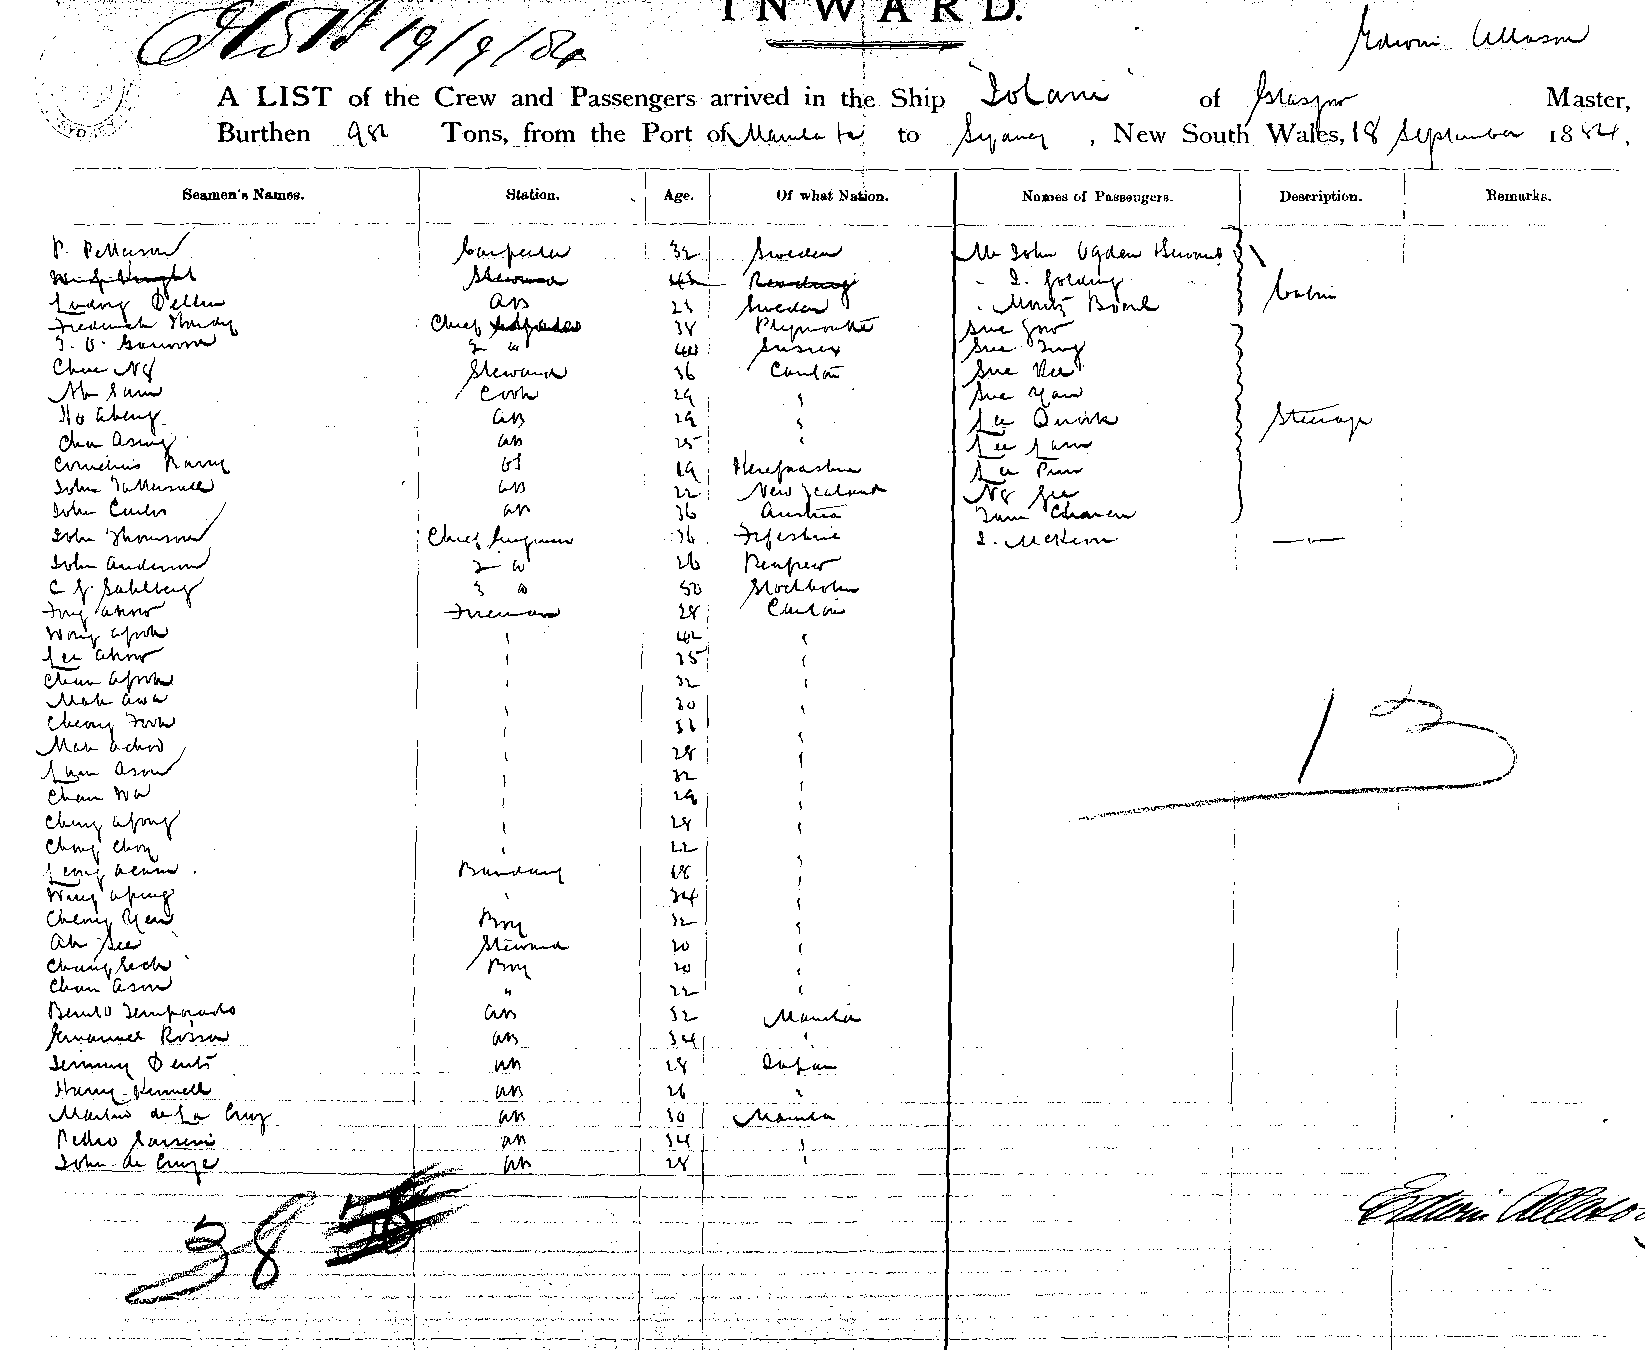 INWARD.
19/9/84
Edwin Allason
A LIST of the Crew and Passengers arrived in the Ship "Iolani" of Glasgow Master,
Burthen 982 Tons, from the Port of Manila to Sydney, New South Wales, 18 September 1884.
Seamen's Names. Station. Age. Of what Nation. Names of Passengers. Description. Remarks.
P. Petterson Carpenter 32 Sweden Mr John Ogden
Steward 42 Reading Golding Cabin
AB 23 Sweden Moritz
Frederick Hardy Chief 38 Plymouth Sue
2 " 40 Sussex Sue
Chue Ng Steward 36 Canton Sue Kee
Ah Sam Cook 29 " Sue Yan
Ho Aheng AB 29 " Lee Quork Steerage
Cha Asing AB 25 " Lee Lam
Cornelius Barry OS 19 Herefordshire Lee
John Tattersall AB 22 New Zealand Ng See
John Carlos AB 36 Austria
John Thomson Chief Engineer 36 Fifeshire J. McKern —
John Anderson 2 " 26 Renfrew
C J Sahlberg 3 " 50 Stockholm
Fong Ahow Fireman 28 Canton
Wong Afook " 42 "
Lee Ahow " 25 "
Chan Afook " 32 "
Mak Awa " 30 "
Cheong Fook " 31 "
Mak Achoo " 28 "
Lum Asow " 32 "
Chan Wa " 29 "
Cheng Afong " 28 "
Chong Choy " 22 "
Leong Acum 18 "
Wong Aping " 34 "
Cheong Yeu Boy 32 "
Ah See Steward 20 "
Chung Sech Boy 20 "
Chan Asow " 22 "
Benito Temporado AB 32 Manila
Emanuel Rosario AB 34 "
Jimmy AB 28 Japan
Harry Kennell AB 26 "
Martino de La Cruz AB 30 Manila
Pedro AB 34 "
John de Cruze AB 28 "
13
38
Edwin Allason